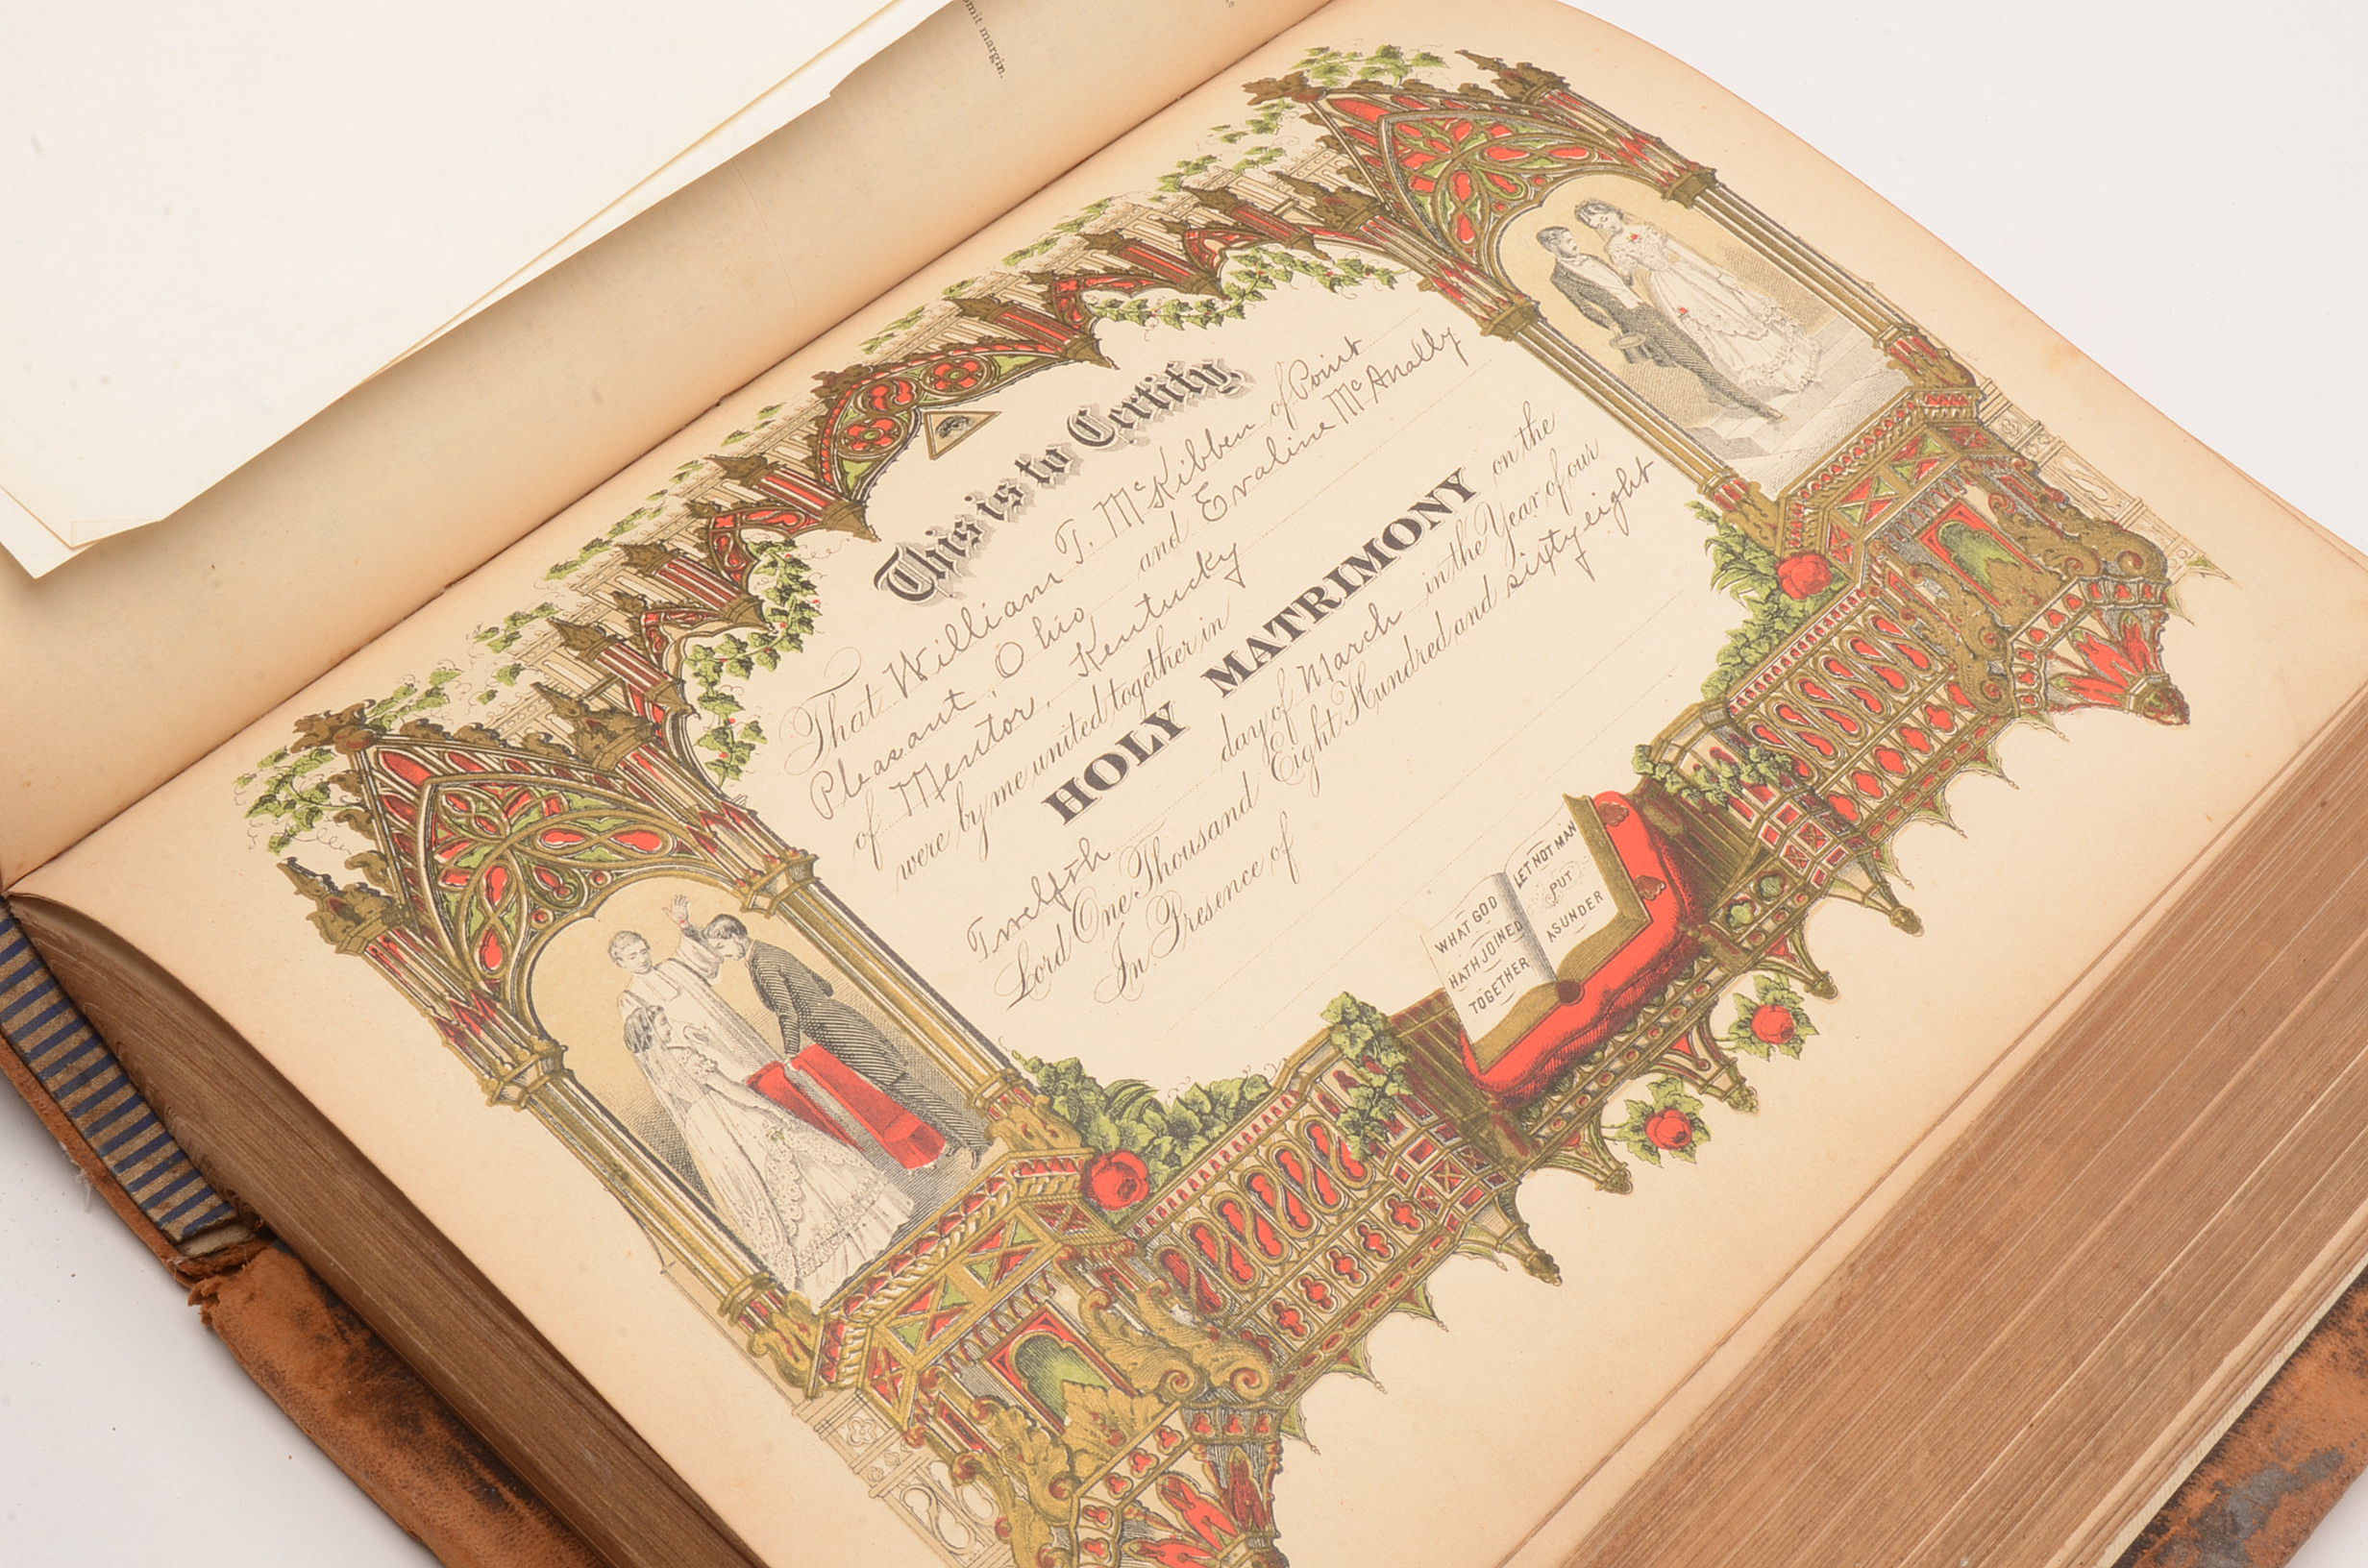 omit margin.
This is to Certify,
That William T. McKibben of Point
Pleasant, Ohio and Evaline McAnally
of Mentor, Kentucky
were by me united together in
HOLY MATRIMONY on the
Twelfth day of March in the Year of our
Lord One Thousand Eight Hundred and sixty eight
In Presence of
WHAT GOD
HATH JOINED
TOGETHER
LET NOT MAN
PUT
ASUNDER